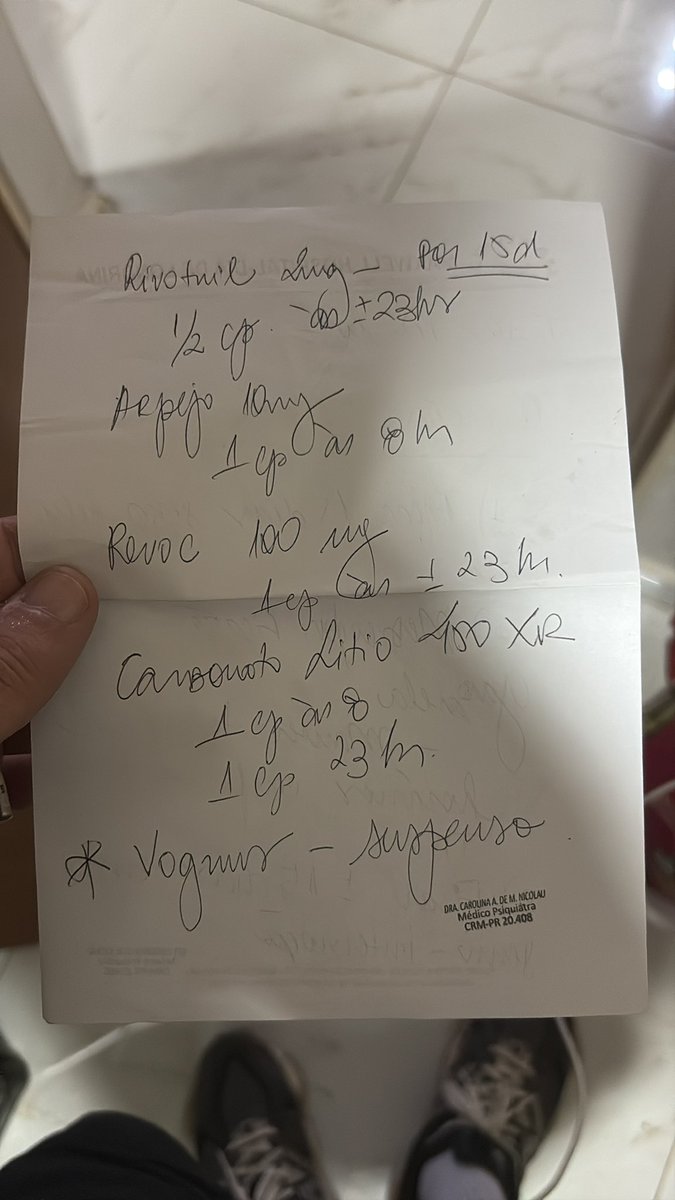 Rivotril 2mg - por 15d
1/2 cp. às ± 23hr
Arpejo 10mg
1 cp às 8h
Revoc 100 mg
1 cp às ± 23h.
Carbonato Lítio 400 XR
1 cp às 8
1 cp 23h.
* - suspenso.
DRA. CAROLINA A. DE M. NICOLAU
Médico Psiquiátra
CRM-PR 20.408